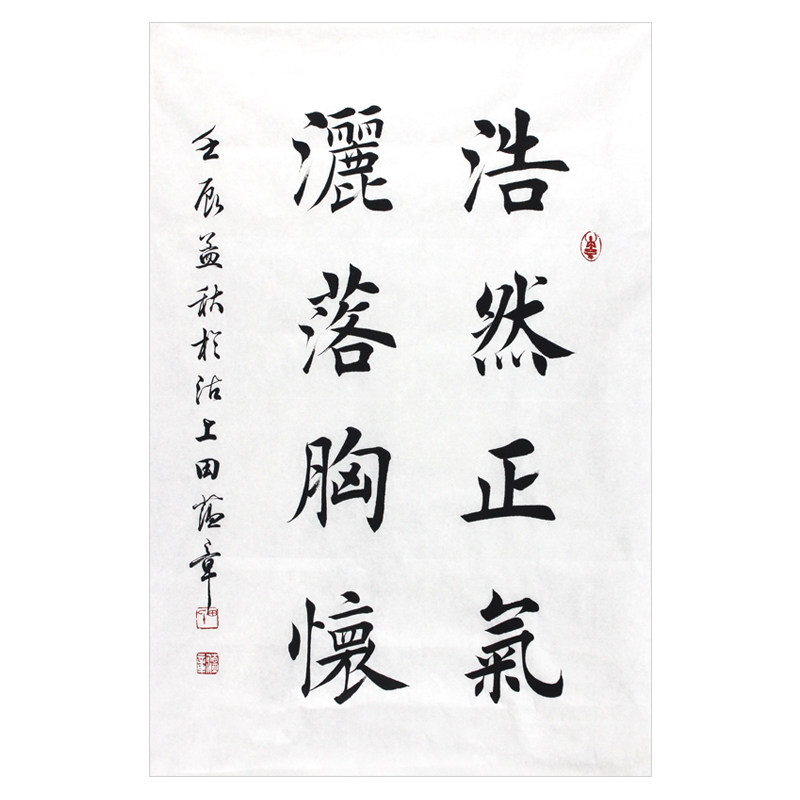 浩然正氣
灑落胸懷
壬辰孟秋於沽上田蘊章